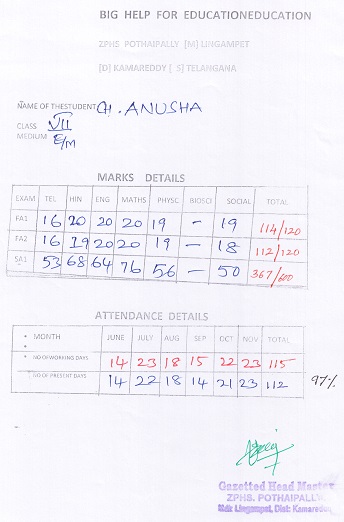 BIG HELP FOR EDUCATIONEDUCATION
ZPHS POTHAIPALLY [M] LINGAMPET
[D] KAMAREDDY [ S] TELANGANA
NAME OF THESTUDENT CH. ANUSHA
CLASS VII
MEDIUM E/M
MARKS DETAILS
EXAM TEL HIN ENG MATHS PHYSC BIOSCI SOCIAL TOTAL
FA1 16 20 20 20 19 - 19 114/120
FA2 16 19 20 20 19 - 18 112/120
SA1 53 68 64 76 56 - 50 367/600
ATTENDANCE DETAILS
MONTH JUNE JULY AUG SEP OCT NOV TOTAL
NO OF WORKING DAYS 14 23 18 15 22 23 115
NO OF PRESENT DAYS 14 22 18 14 21 23 112 97%
Gazetted Head Master
ZPHS. POTHAIPALLY
Mdl: Lingampet, Dist: Kamareddy